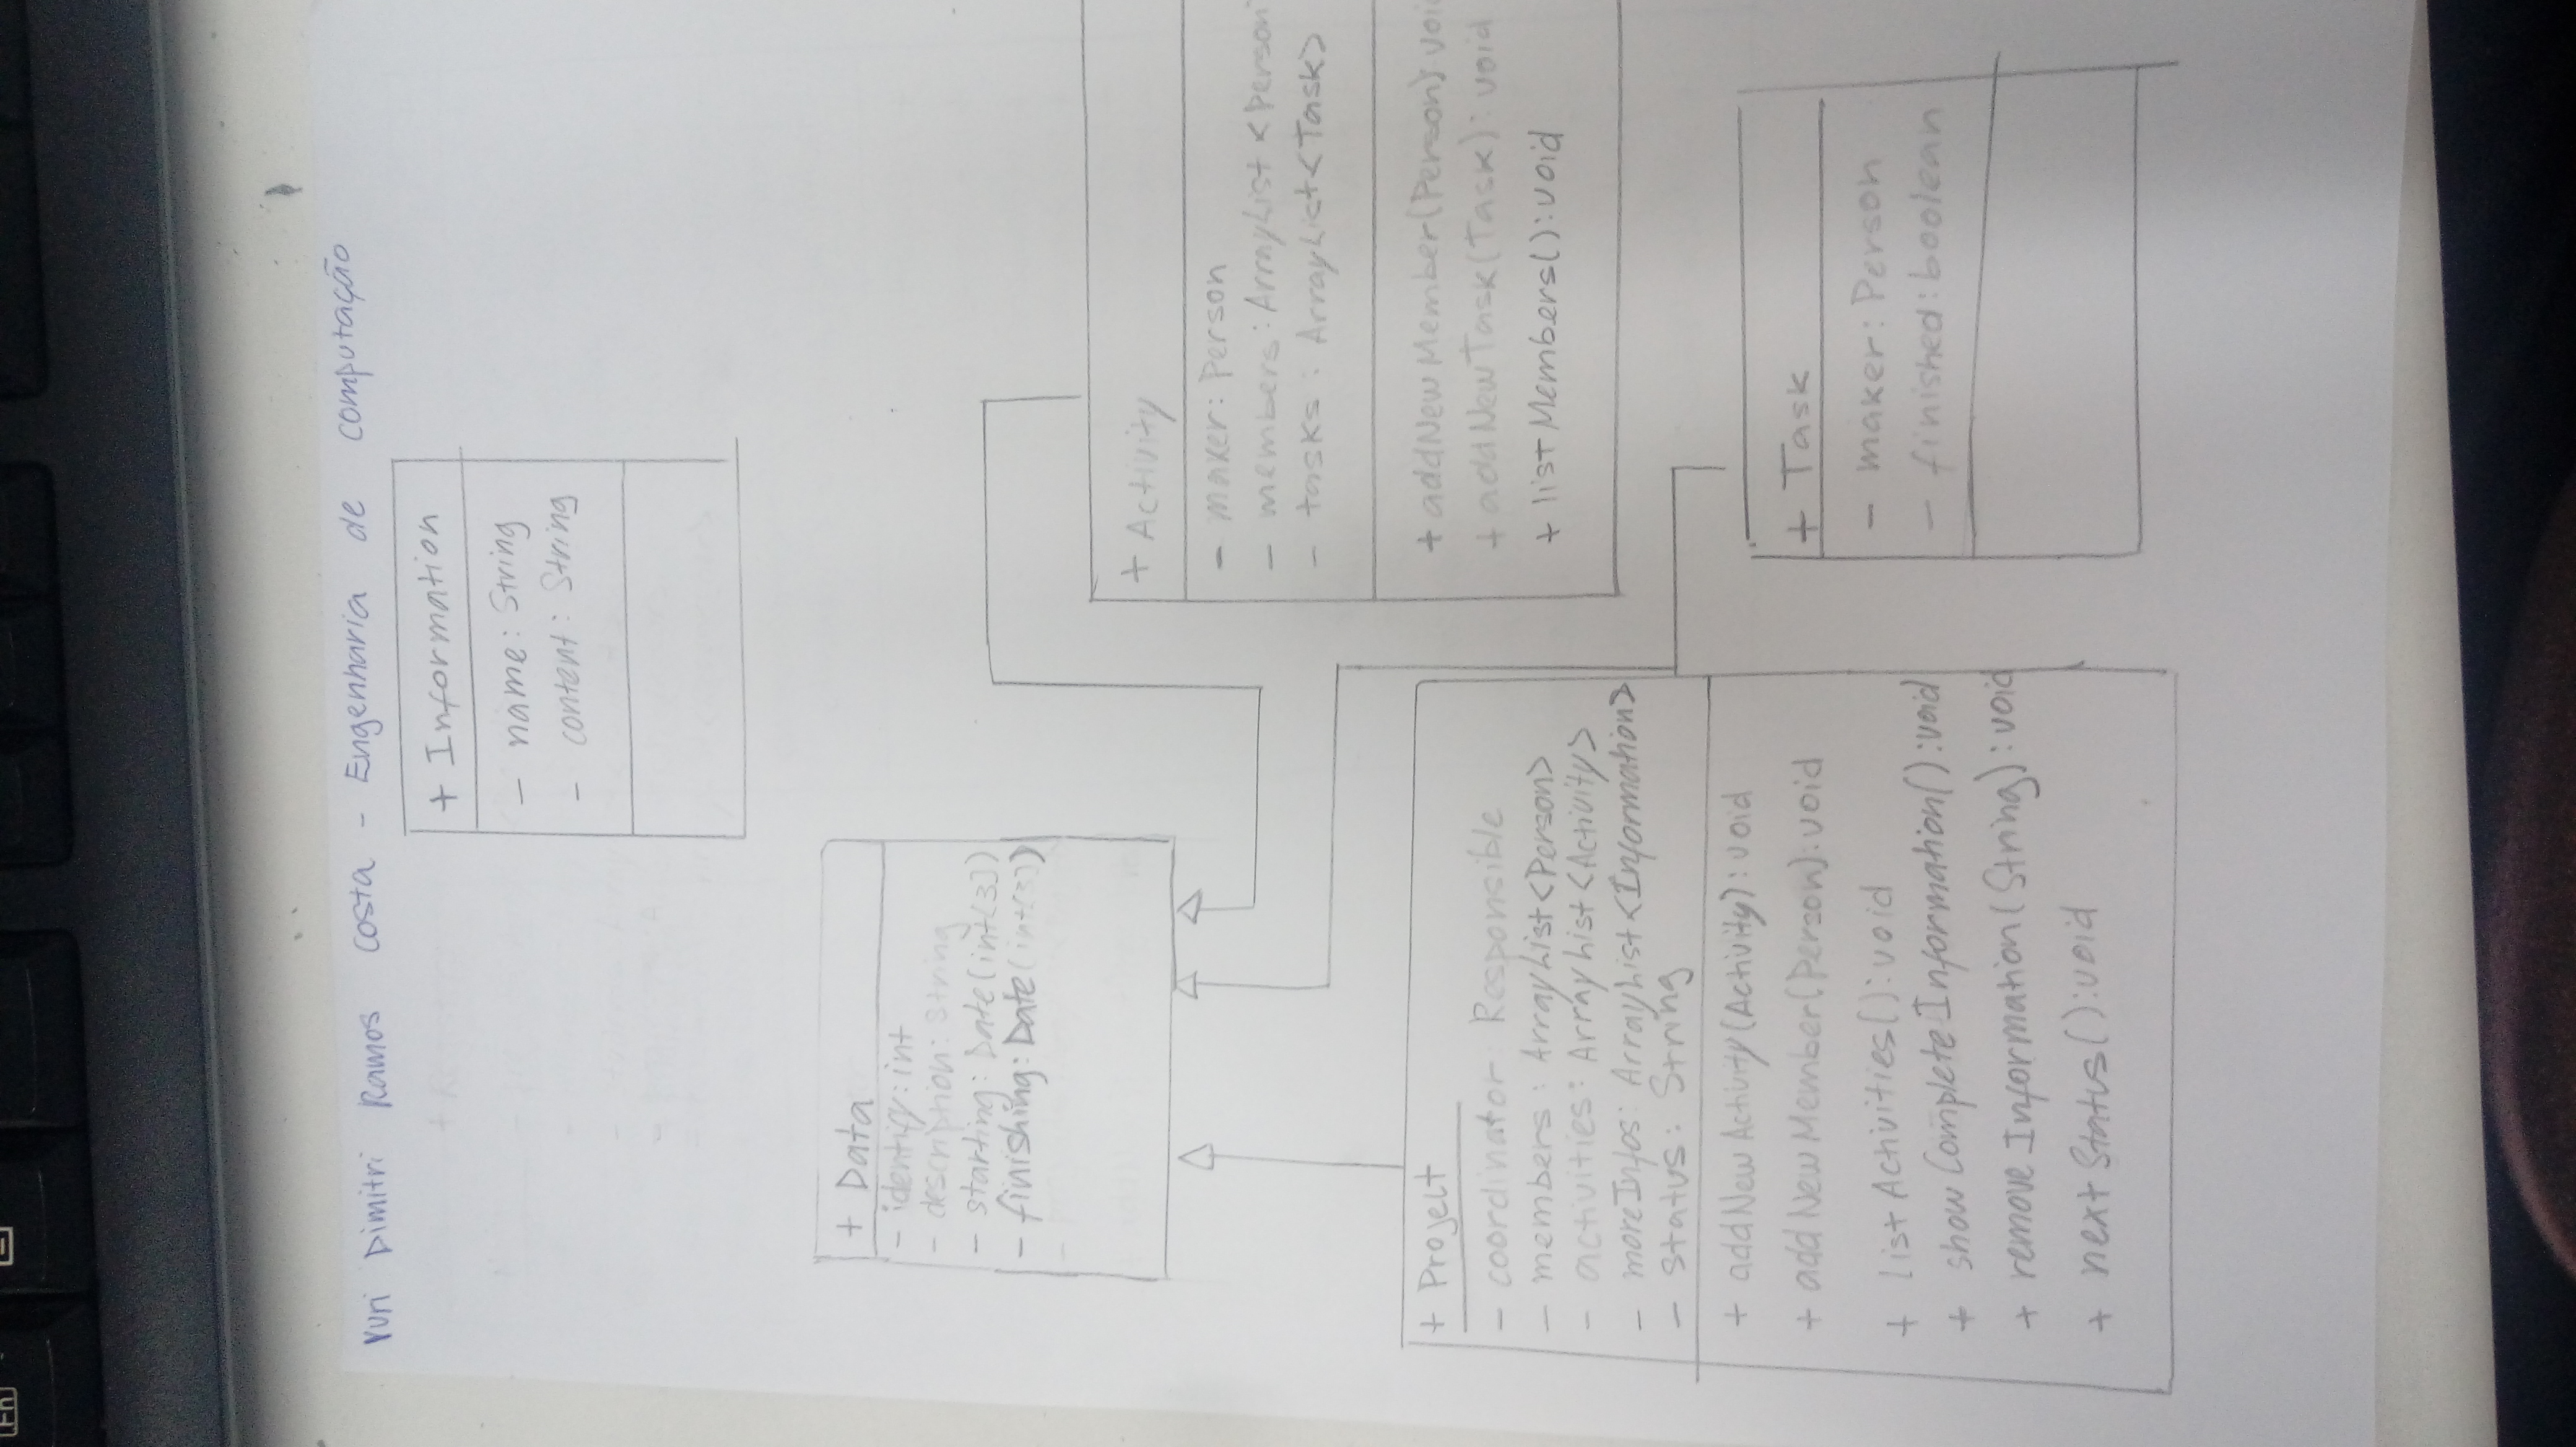 Fn
Yuri Dimitri Ramos Costa - Engenharia de computação
+ Information
- name: String
- content: String
+ Data
- identify: int
- description: String
- starting: Date(int[3])
- finishing: Date(int[3])
+ Activity
- maker: Person
- members: ArrayList <Person
- tasks: ArrayList<Task>
+ addNewMember(Person) voi
+ addNewTask(Task): void
+ listMembers():void
+ Project
- coordinator Responsible
- members: ArrayList<Person>
- activities: ArrayList<Activity>
- moreInfos: ArrayList<Information>
- status: String
+ addNewActivity(Activity): void
+ addNewMember(Person):void
+ listActivities():void
+ showCompleteInformation():void
+ removeInformation(String): void
+ nextStatus():void
+ Task
- maker: Person
- finished: boolean